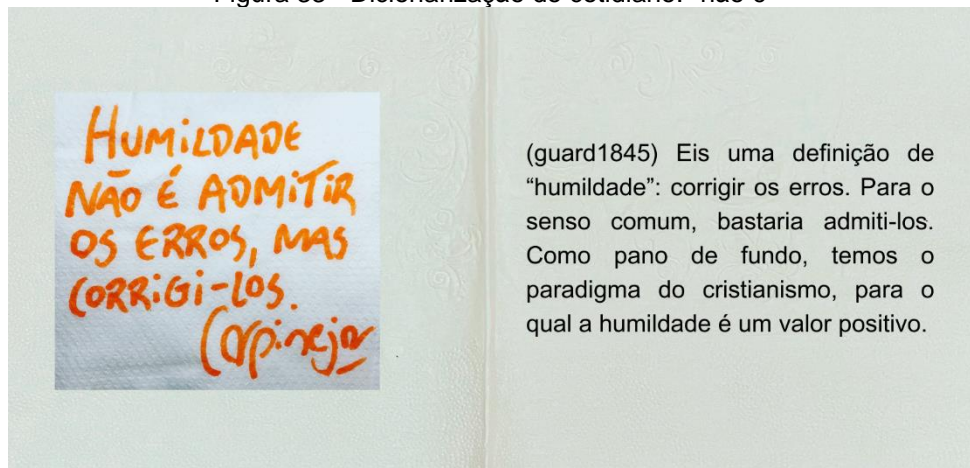 HUMILDADE
NÃO É ADMITIR
OS ERROS, MAS
CORRIGI-LOS.
Carpinejar
(guard1845) Eis uma definição de
“humildade”: corrigir os erros. Para o
senso comum, bastaria admiti-los.
Como pano de fundo, temos o
paradigma do cristianismo, para o
qual a humildade é um valor positivo.